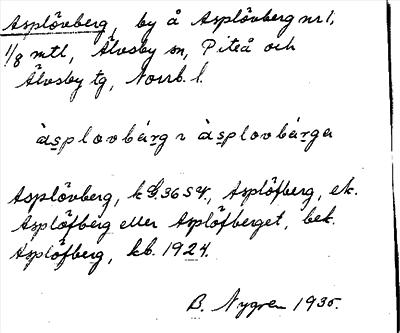 Asplövberg, by å Asplövberg nr 1,
1/8 mtl, Älvsby sn, Piteå och
Älvsby tg, Norrb. l.
àsplovbárg ɿ àsplovbárga
Asplövberg, k G. 36 S 4., Asplöfberg, ek.
Asplöfberg eller Asplöfberget, bek.
Asplöfberg, kb. 1924.
B. Nygren 1935.